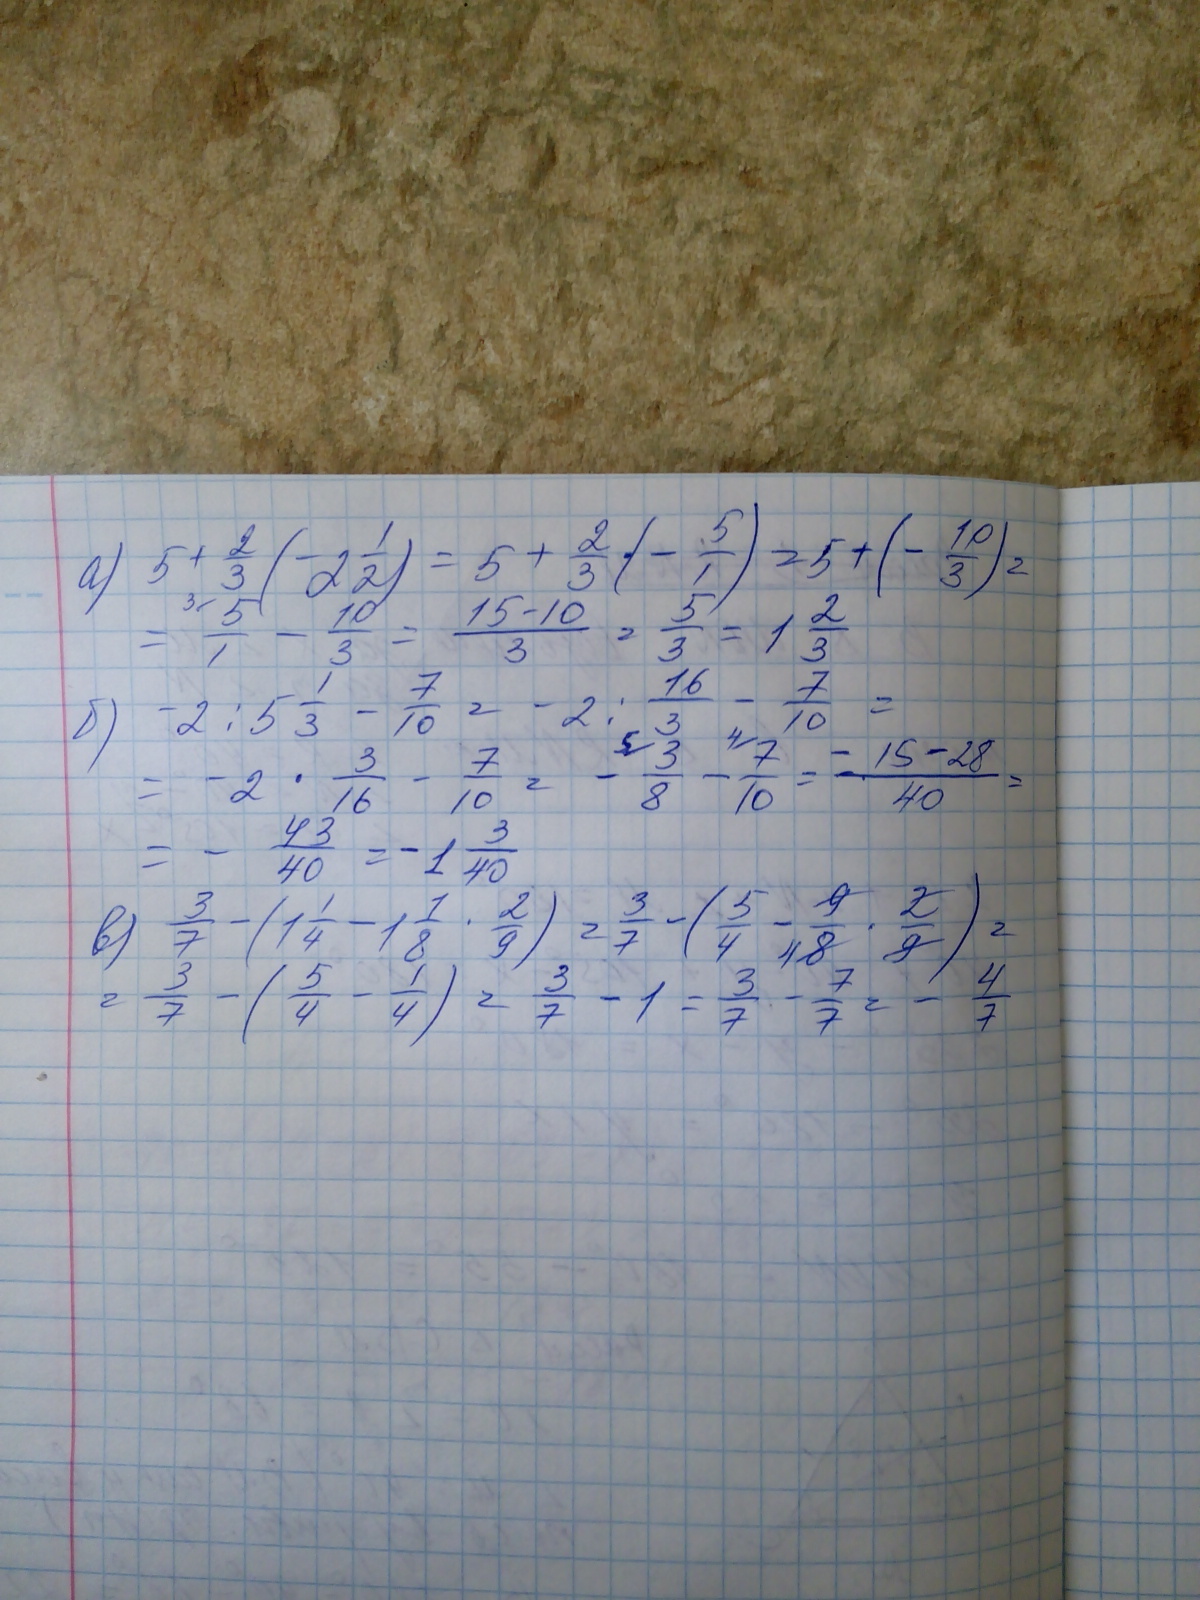 а) 5 + 2/3 (-2 1/2) = 5 + 2/3 · (- 5/1) = 5 + (- 10/3) =
= 3 5/1 - 10/3 = 15-10/3 = 5/3 = 1 2/3
б) -2 : 5 1/3 - 7/10 = -2 : 16/3 - 7/10 =
= -2 · 3/16 - 7/10 = - 5 3/8 - 4 7/10 = -15-28/40 =
= - 43/40 = -1 3/40
в) 3/7 - (1 1/4 - 1 1/8 · 2/9) = 3/7 - (5/4 - 9/4 8 · 2/9) =
= 3/7 - (5/4 - 1/4) = 3/7 - 1 = 3/7 - 7/7 = - 4/7